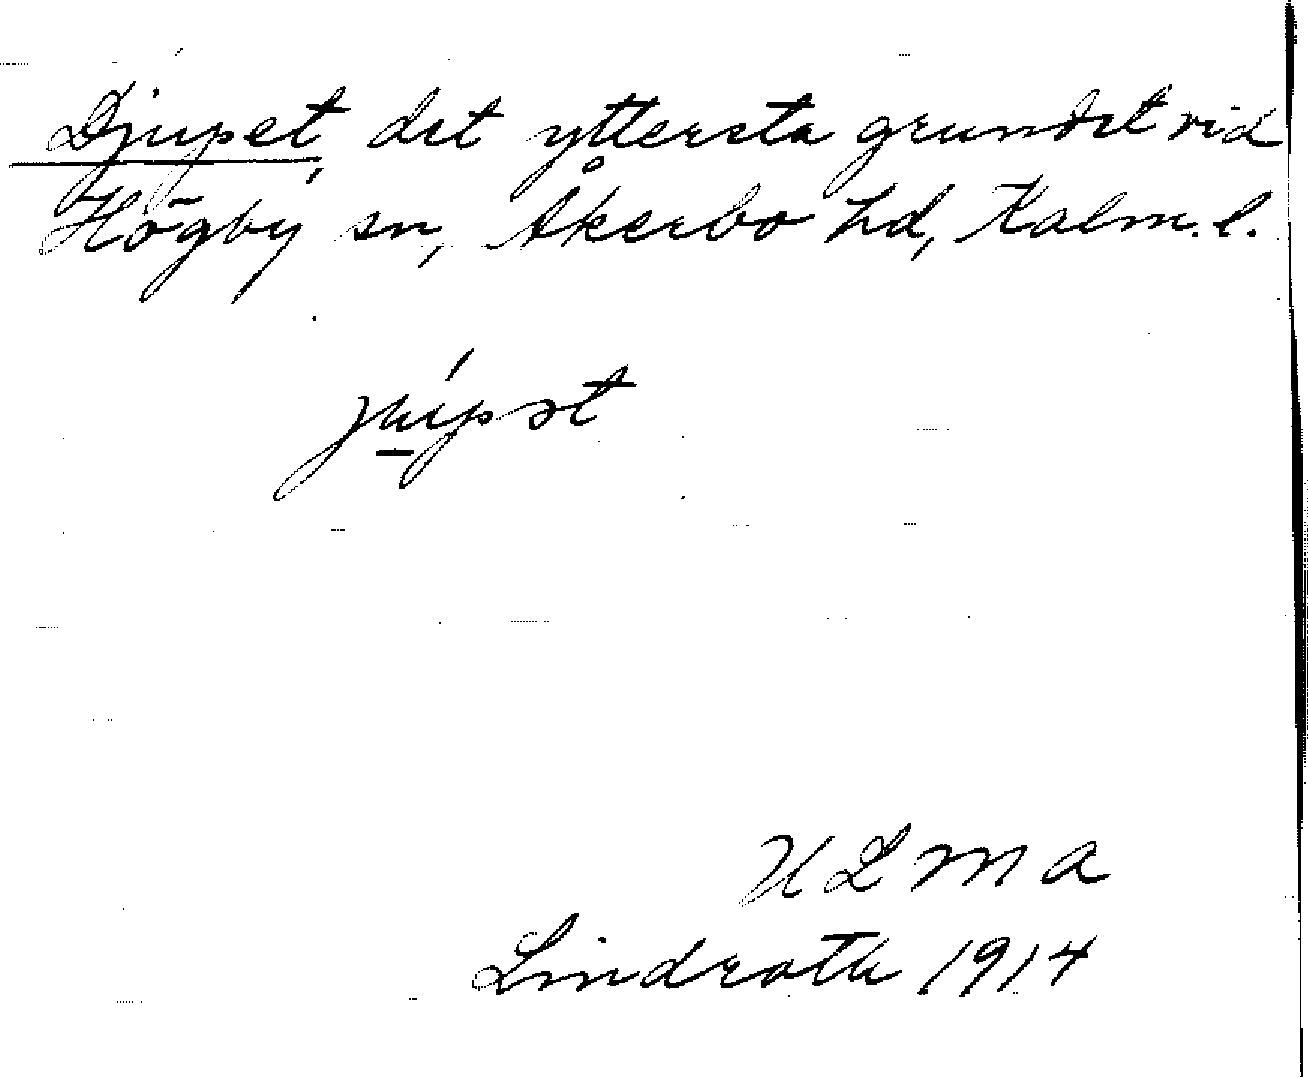 Djupet, det yttersta grundet vid
Högby sn, Åkerbo hd, Kalm. l.
ju̠ṕət
ULMA
Lindroth 1914